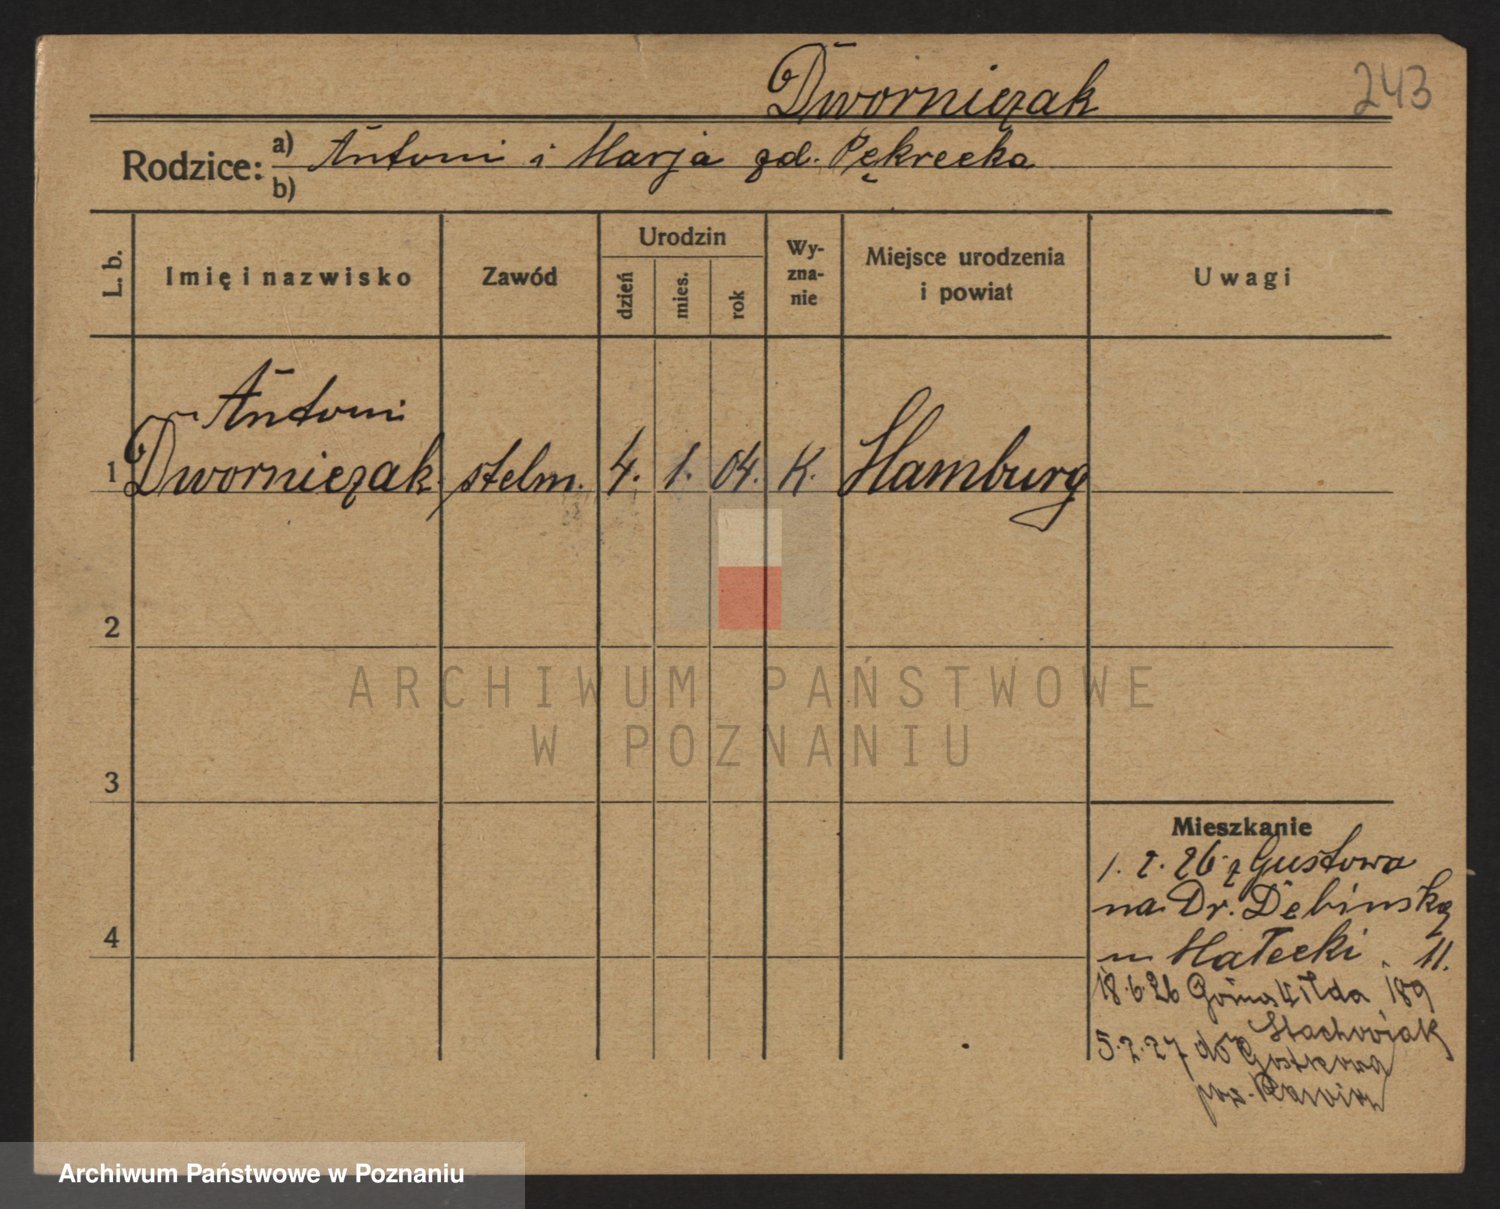 Dworniczak
243
Rodzice: a) Antoni i Marja zd. Pękrecka
b)
L. b.
Imię i nazwisko
Zawód
Urodzin
dzień
mies.
rok
Wy-
zna-
nie
Miejsce urodzenia
i powiat
Uwagi
Antoni
1 Dworniczak stelm. 4. 1. 04. K. Hamburg
2
ARCHIWUM PAŃSTWOWE
W POZNANIU
3
Mieszkanie
1. 2. 26 z Gustowa
na Dr. Dębinską
u Małecki 11.
18.6.26 Górna Wilda 189
Stachowiak
5.2.27 do
pow. Rawicz
4
Archiwum Państwowe w Poznaniu